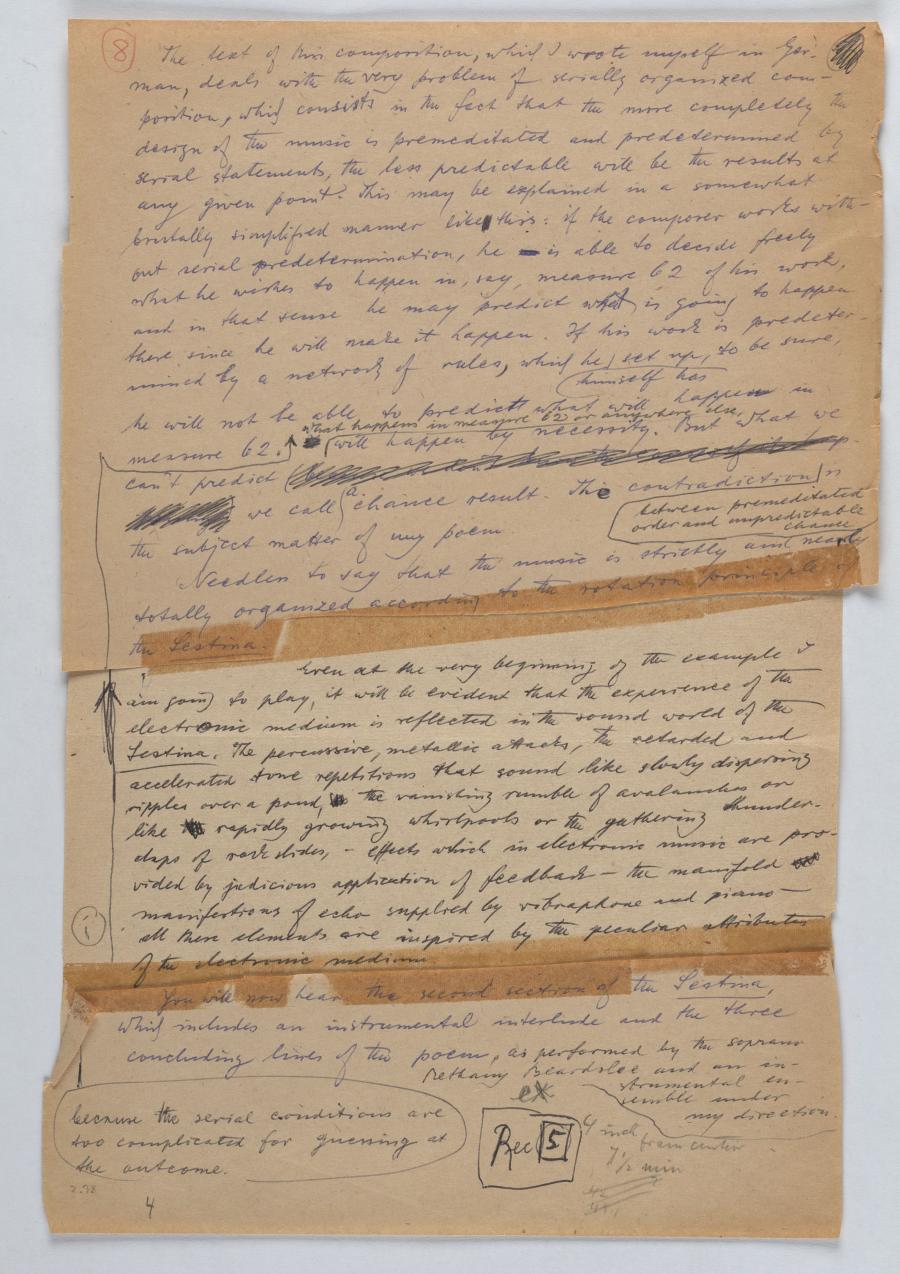 8
The text of this composition, which I wrote myself in Ger-
man, deals with the very problem of serially organized com-
position, which consists in the fact that the more completely the
design of the music is premeditated and predetermined by
serial statements, the less predictable will be the results at
any given point. This may be explained in a somewhat
brutally simplified manner like this: if the composer works with-
out serial predetermination, he is able to decide freely
what he wishes to happen in, say, measure 62 of his work,
and in that sense he may predict what is going to happen
there since he will make it happen. If his work is predeter-
mined by a network of rules, which he set up, to be sure,
himself has
he will not be able to predict what will happen in
what happens in measure 62 or anywhere else,
measure 62. will happen by necessity. But what we
can't predict
we call a chance result. The contradiction is
between premeditated
order and unpredictable
chance
the subject matter of my poem
Needless to say that the music is strictly and nearly
totally organized according to the rotation principle of
the Sestina.
Even at the very beginning of the example I
am going to play, it will be evident that the experience of the
electronic medium is reflected in the sound world of the
Sestina. The percussive, metallic attacks, the retarded and
accelerated tone repetitions that sound like slowly dispersing
ripples over a pond, the vanishing rumble of avalanches or
like rapidly growing whirlpools or the gathering thunder-
claps of rock slides, - effects which in electronic music are pro-
vided by judicious application of feedback - the manifold
manifestions of echo supplied by vibraphone and piano -
all these elements are inspired by the peculiar attributes
i
of the electronic medium.
You will now hear the second section of the Sestina,
which includes an instrumental interlude and the three
concluding lines of the poem, as performed by the soprano
Bethany Beardslee and an in-
strumental en-
semble under
my direction.
ex
because the serial conditions are
too complicated for guessing at
the outcome.
Rec 5
4 inch from center
7 1/2 min
2.98
4